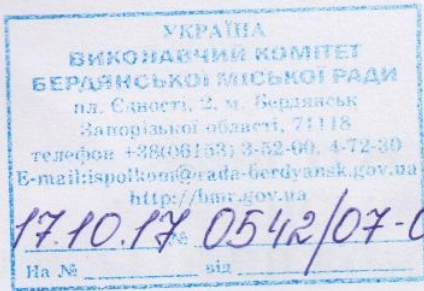 УКРАЇНА
ВИКОНАВЧИЙ КОМІТЕТ
БЕРДЯНСЬКОЇ МІСЬКОЇ РАДИ
пл. Єдності, 2, м. Бердянськ
Запорізької області, 71118
телефон +38(06153) 3-52-00, 4-72-30
E-mail:ispolkom@rada-berdyansk.gov.ua
http://bmr.gov.ua
17.10.17 № 0542/07-0
На № від